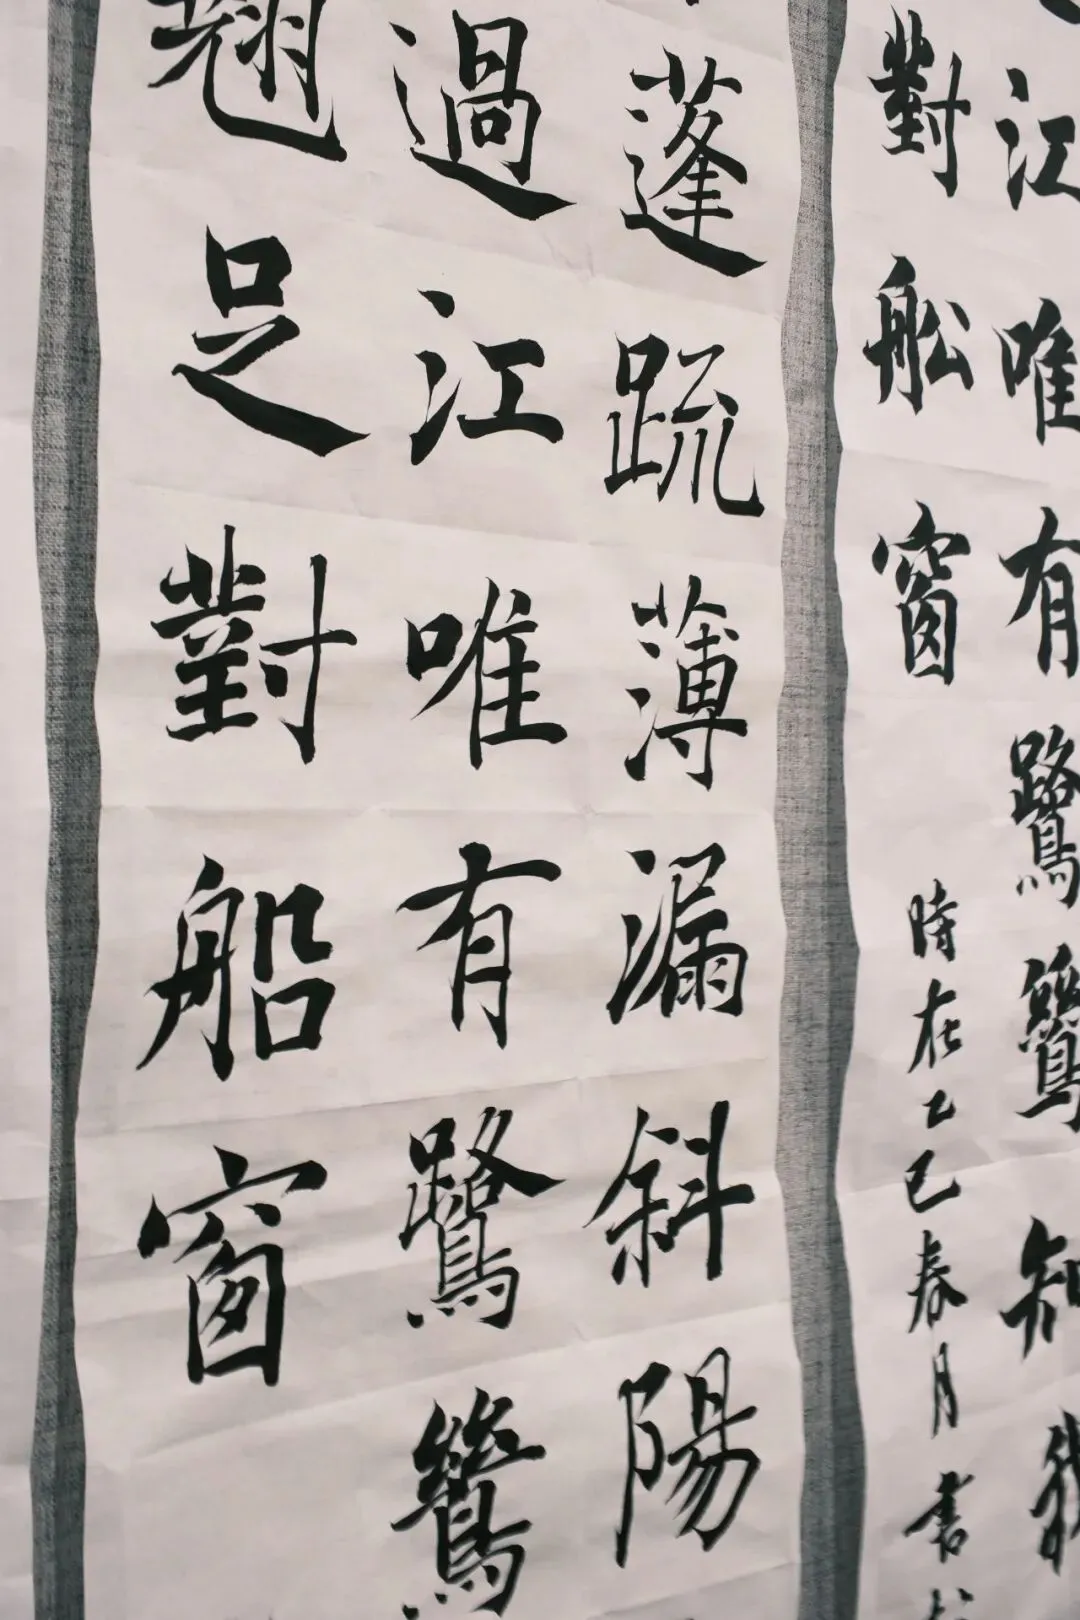 江唯有鷺鷥知我
對舩窗
時在乙巳春月書
蓬疏薄漏斜陽
過江唯有鷺鷥
翹足對船窗